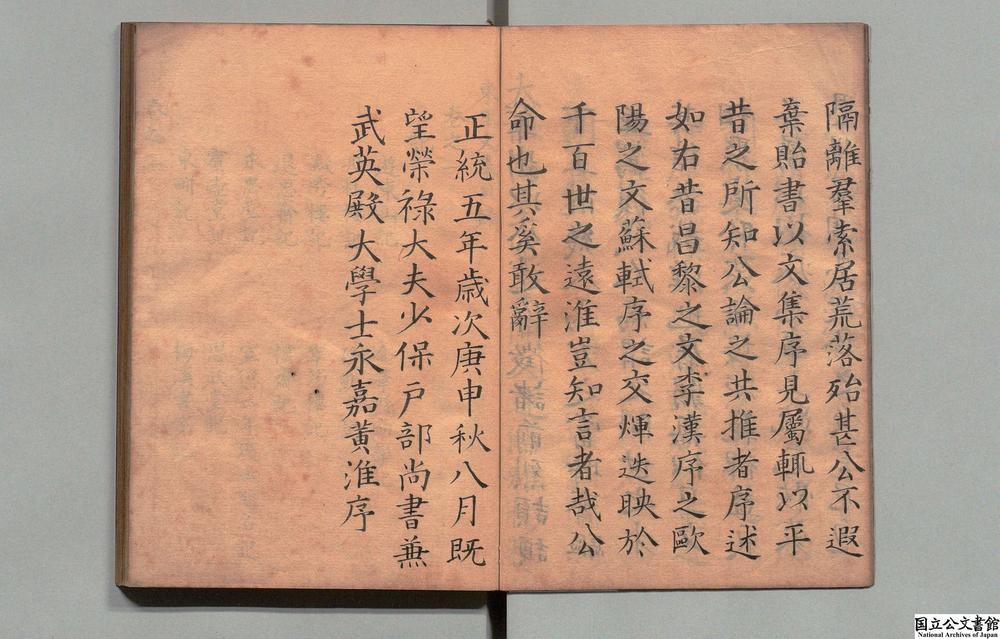 隔離羣索居荒落殆甚公不遐
棄貽書以文集序見屬輒以平
昔之所知公論之共推者序述
如右昔昌黎之文李漢序之歐
陽之文蘇軾序之交煇迭映於
千百世之遠淮豈知言者哉公
命也其奚敢辭
正統五年歲次庚申秋八月既
望榮祿大夫少保戶部尚書兼
武英殿大學士永嘉黃淮序
国立公文書館
National Archives of Japan